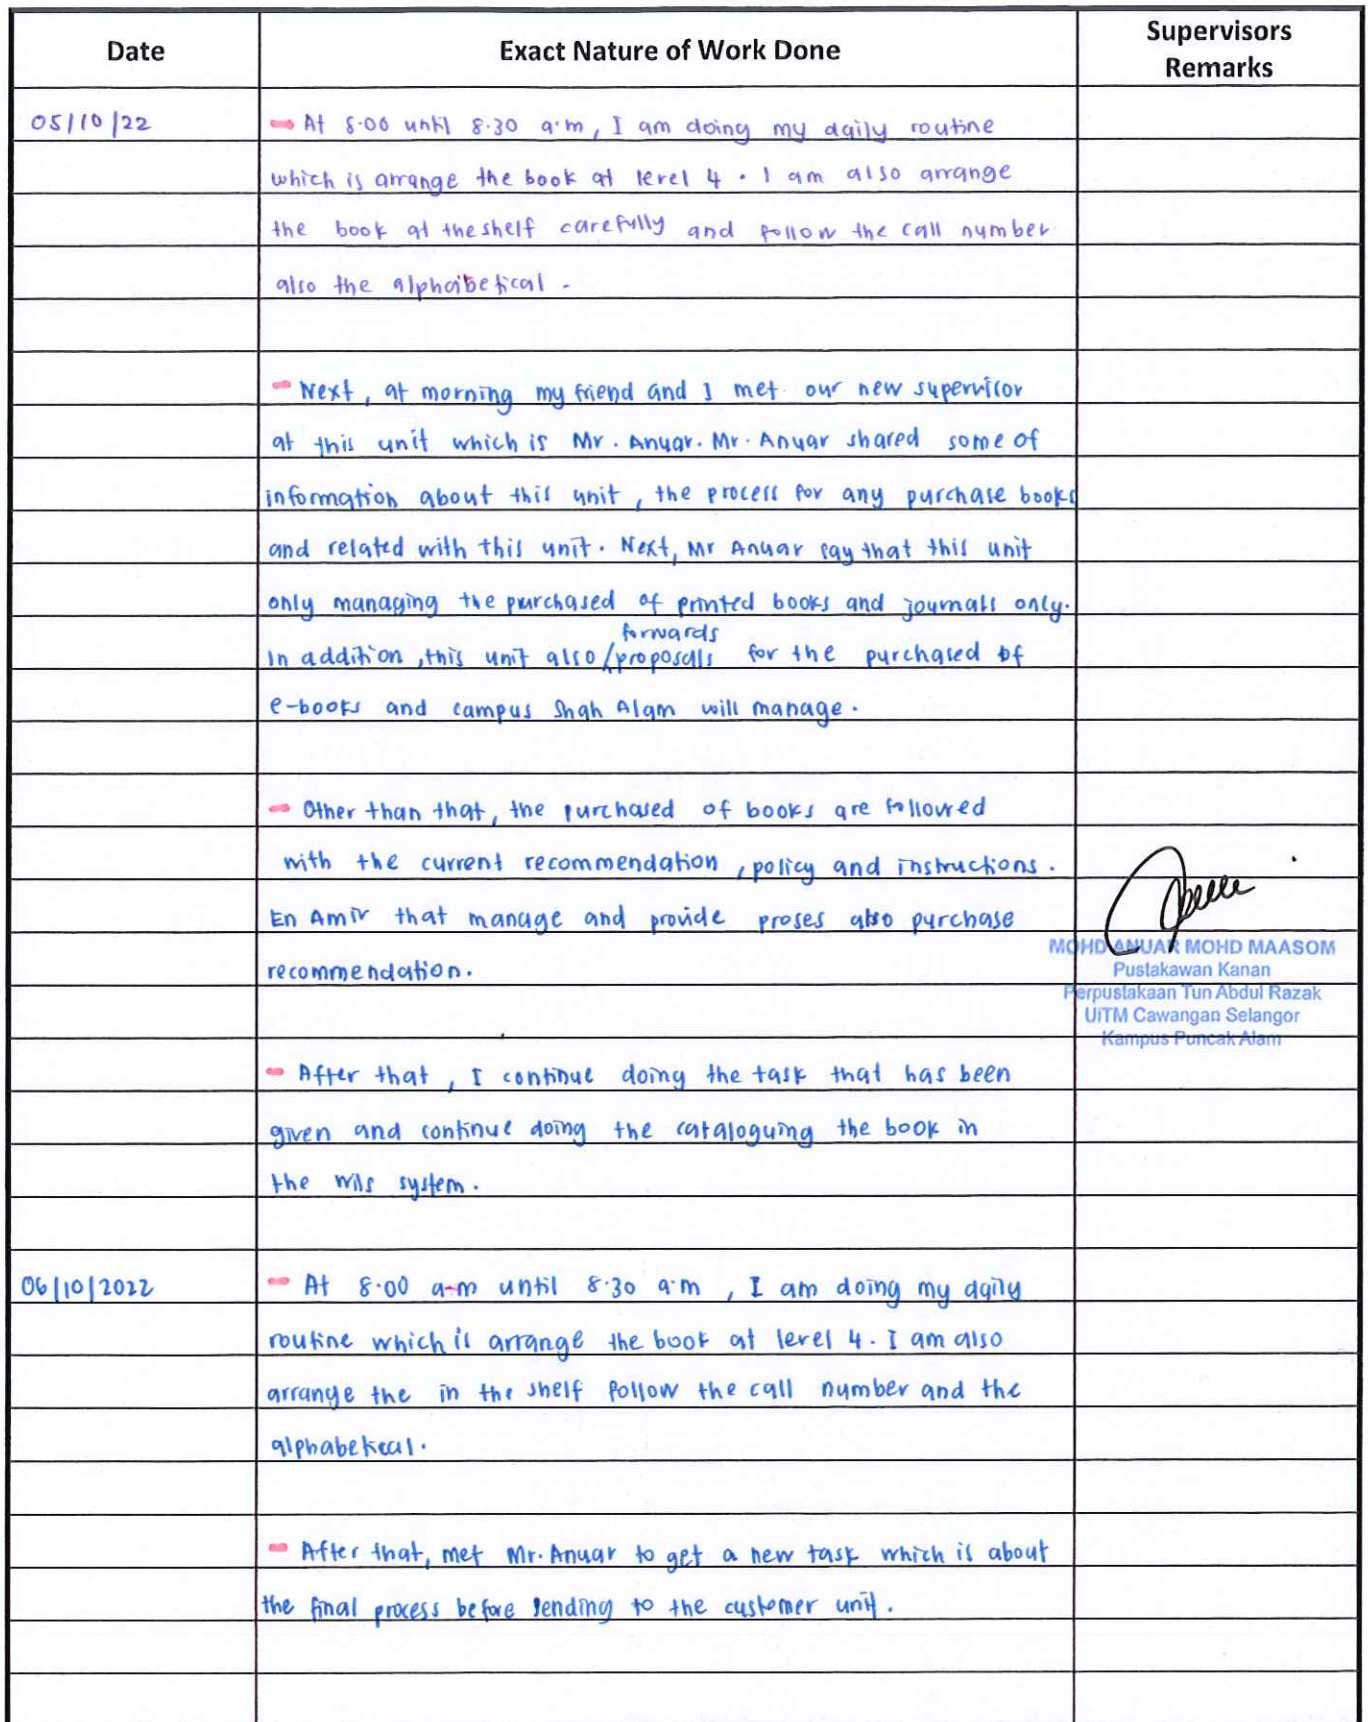 Date
Exact Nature of Work Done
Supervisors
Remarks
05/10/22
At 8.00 until 8.30 a.m, I am doing my daily routine
which is arrange the book at level 4. I am also arrange
the book at the shelf carefully and follow the call number
also the alphabetical.
Next, at morning my friend and I met our new supervisor
at this unit which is Mr. Anuar. Mr. Anuar shared some of
information about this unit, the process for any purchase books
and related with this unit. Next, Mr Anuar say that this unit
only managing the purchased of printed books and journals only.
forwards
In addition, this unit also / proposals for the purchased of
e-books and campus Shah Alam will manage.
Other than that, the purchased of books are followed
with the current recommendation, policy and instructions.
En Amir that manage and provide proses also purchase
recommendation.
MOHD ANUAR MOHD MAASOM
Pustakawan Kanan
Perpustakaan Tun Abdul Razak
UiTM Cawangan Selangor
Kampus Puncak Alam
After that, I continue doing the task that has been
given and continue doing the cataloguing the book in
the wils system.
06/10/2022
At 8.00 a.m until 8.30 a.m, I am doing my daily
routine which is arrange the book at level 4. I am also
arrange the in the shelf follow the call number and the
alphabetical.
After that, met Mr. Anuar to get a new task which is about
the final process before sending to the customer unit.